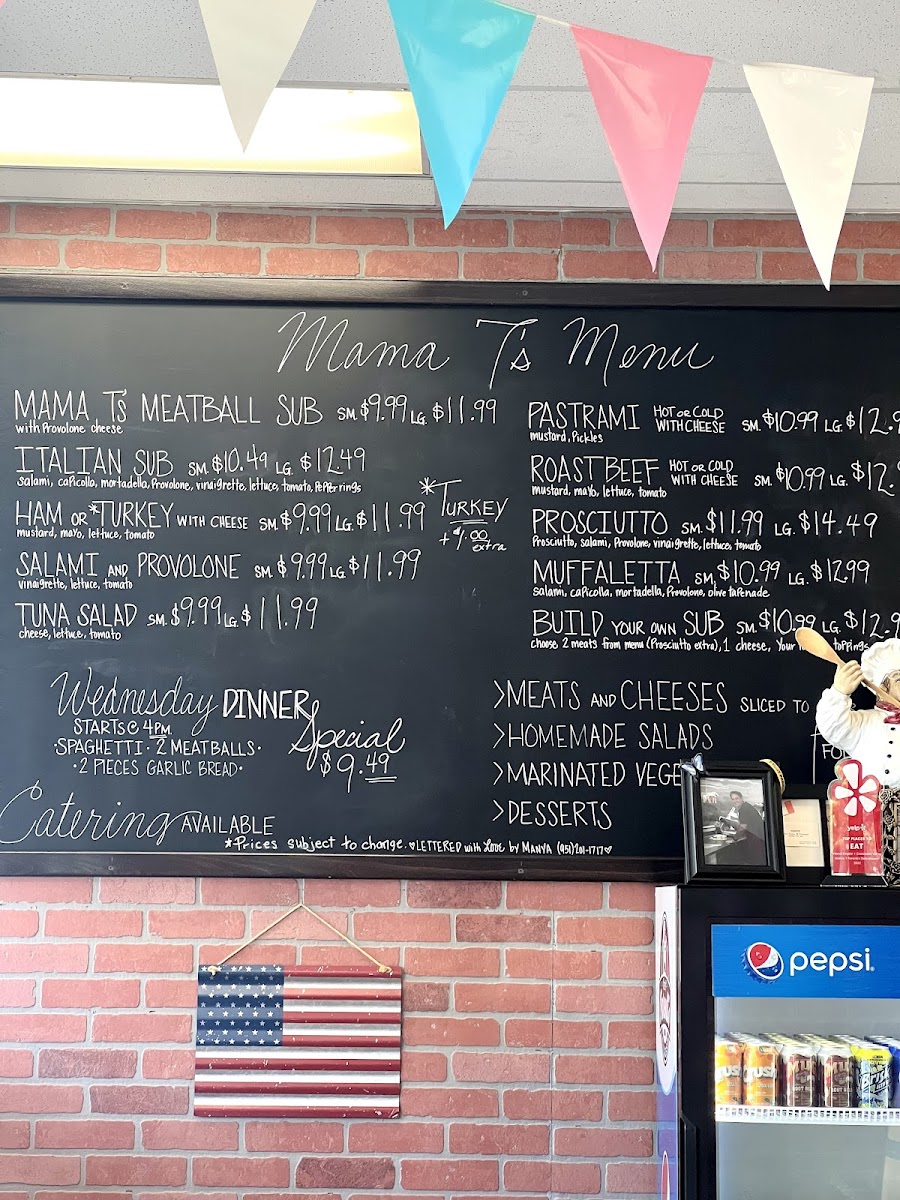 Mama T's Menu
MAMA T's MEATBALL SUB SM. $9.99 LG. $11.99
with Provolone cheese
ITALIAN SUB SM. $10.49 LG. $12.49
salami, capicolla, mortadella, Provolone, vinaigrette, lettuce, tomato, PePPer rings
HAM OR *TURKEY WITH CHEESE SM. $9.99 LG. $11.99
mustard, mayo, lettuce, tomato
*TURKEY
+ $1.00
extra
SALAMI AND PROVOLONE SM. $9.99 LG. $11.99
vinaigrette, lettuce, tomato
TUNA SALAD SM. $9.99 LG. $11.99
cheese, lettuce, tomato
PASTRAMI HOT OR COLD WITH CHEESE SM. $10.99 LG. $12.9
mustard, Pickles
ROAST BEEF HOT OR COLD WITH CHEESE SM. $10.99 LG. $12.
mustard, mayo, lettuce, tomato
PROSCIUTTO SM. $11.99 LG. $14.49
Prosciutto, salami, Provolone, vinaigrette, lettuce, tomato
MUFFALETTA SM. $10.99 LG. $12.99
salami, capicolla, mortadella, Provolone, olive tapenade
BUILD YOUR OWN SUB SM. $10.99 LG. $12.9
choose 2 meats from menu (Prosciutto extra), 1 cheese, Your toppings
Wednesday DINNER
STARTS @ 4PM
·SPAGHETTI · 2 MEATBALLS·
·2 PIECES GARLIC BREAD·
Special
$9.49
>MEATS AND CHEESES SLICED TO
>HOMEMADE SALADS
>MARINATED VEGE
>DESSERTS
Catering AVAILABLE
*Prices subject to change. ♥LETTERED with Love by MANYA (951)201-1717♥
yelp
TOP PLACES
EAT
pepsi